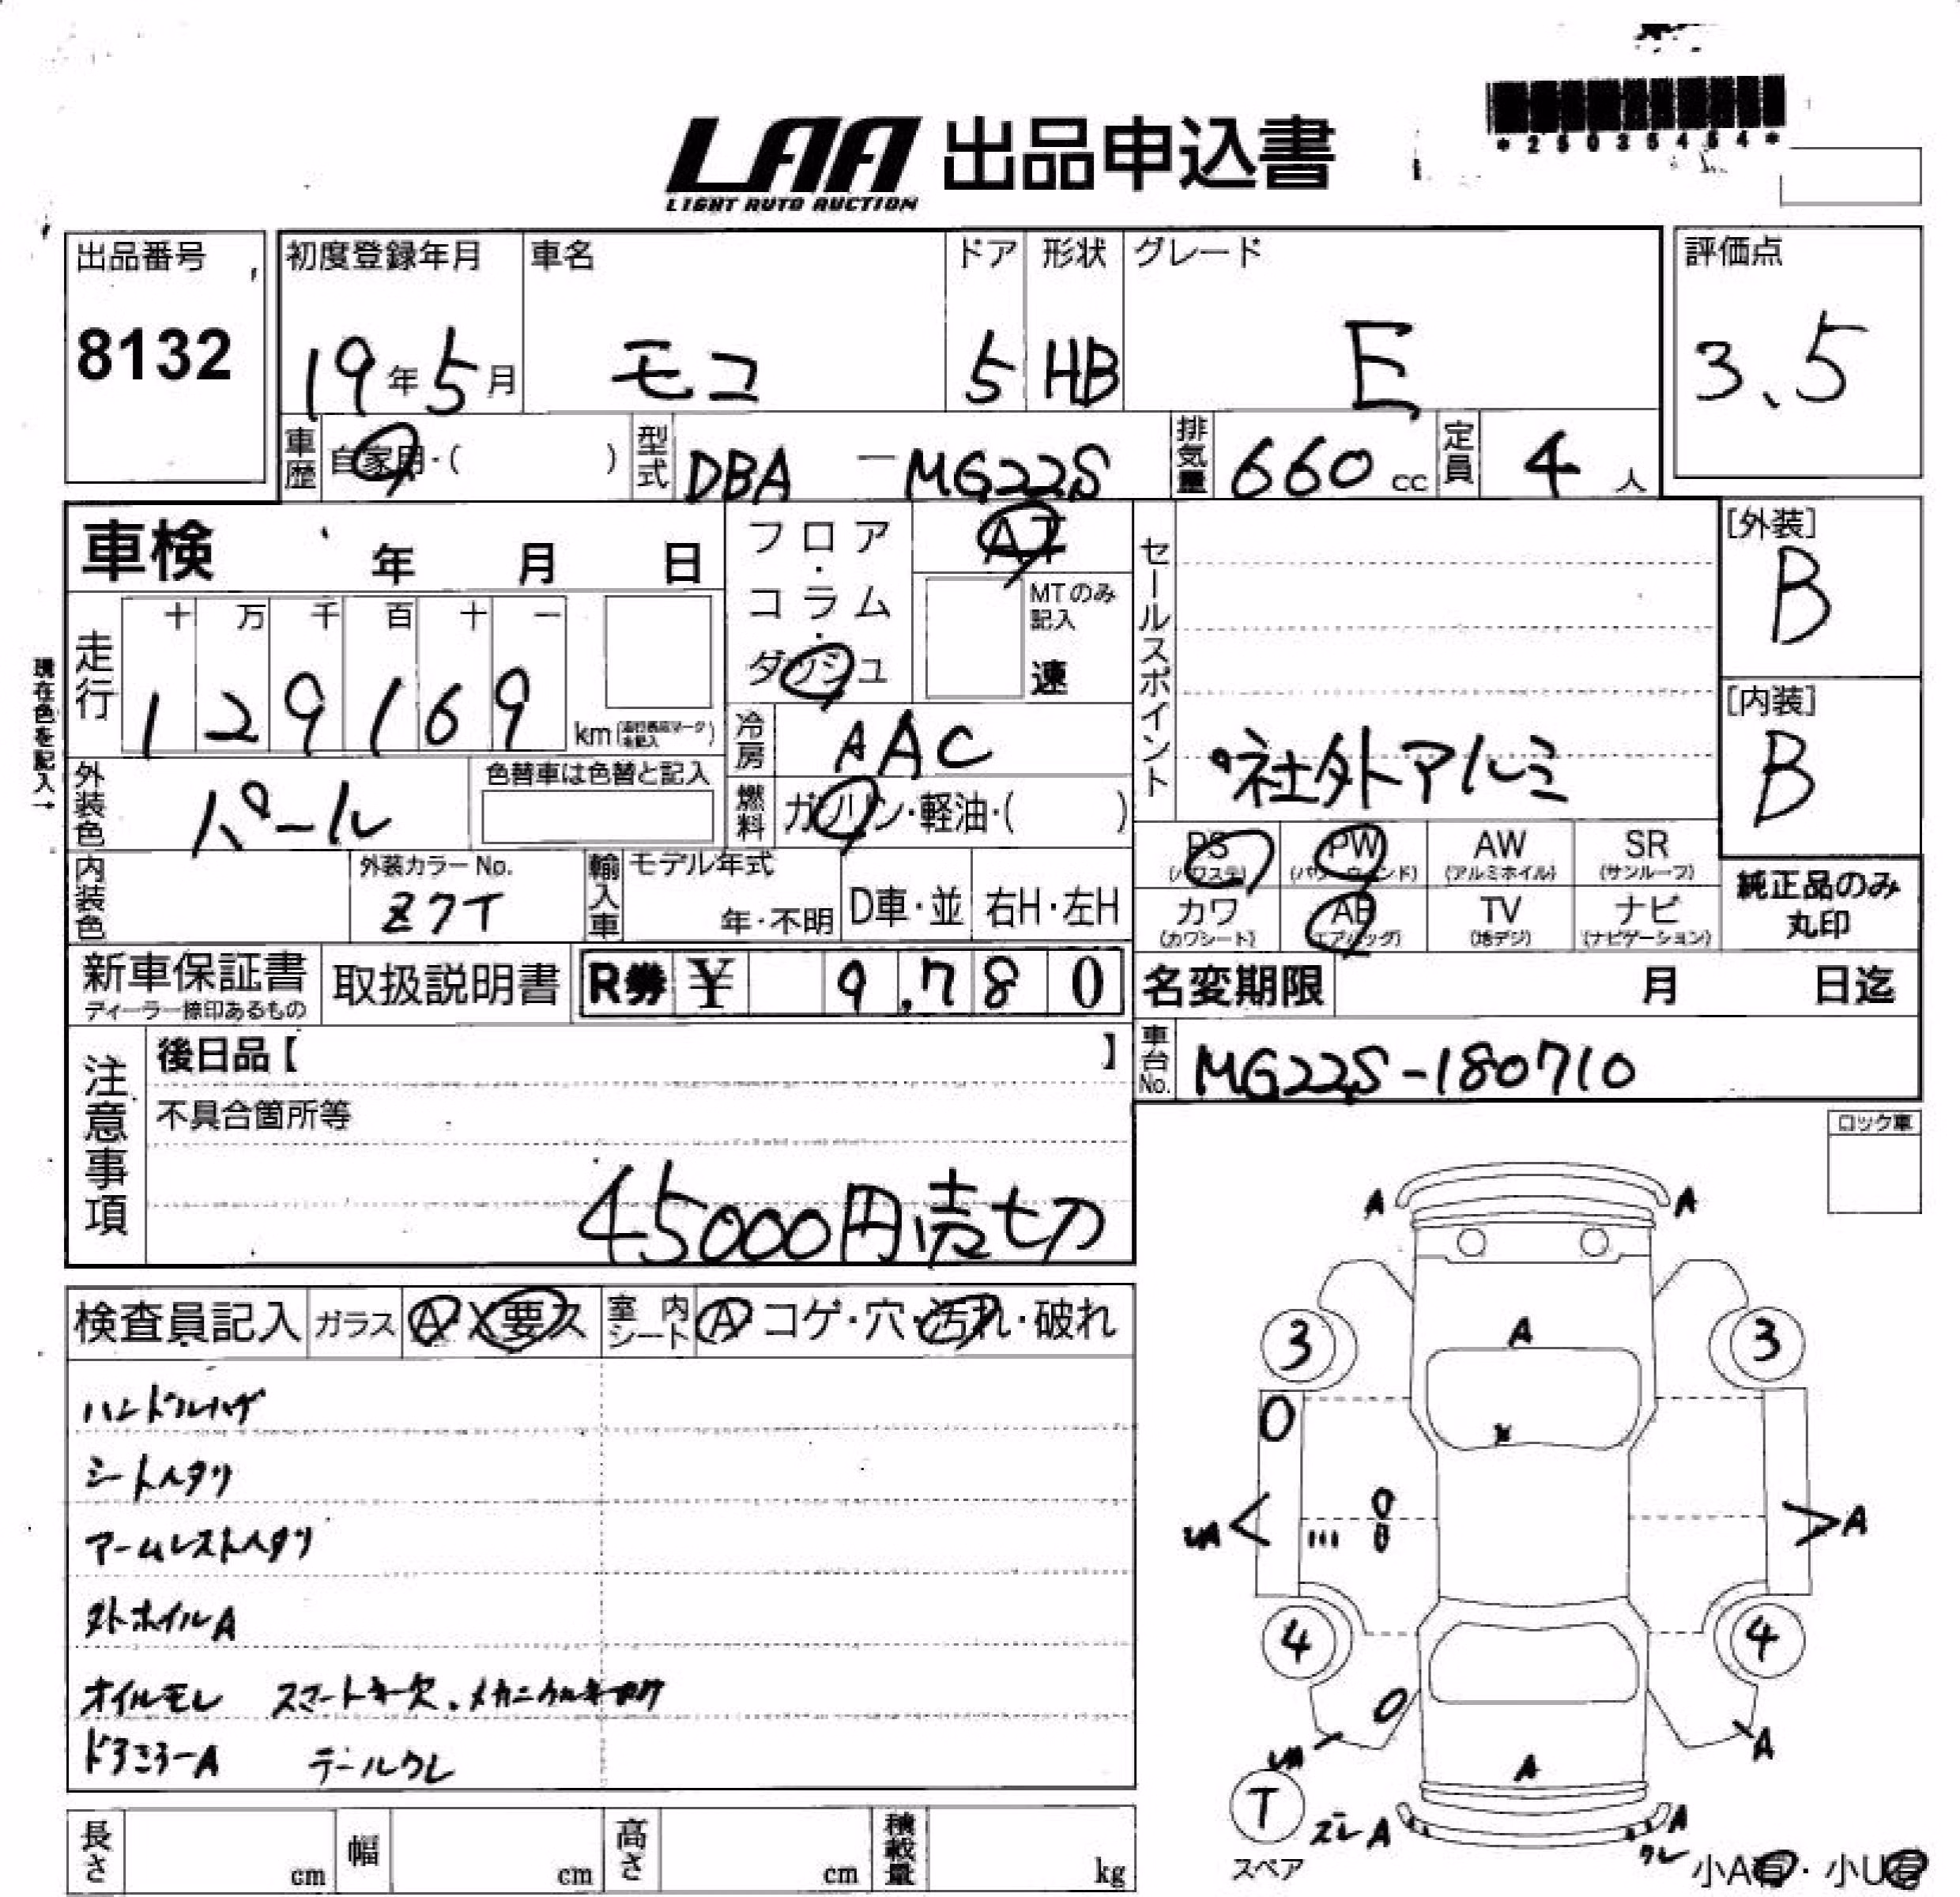 *25035454*
LAA 出品申込書
LIGHT AUTO AUCTION
出品番号 初度登録年月 車名 ドア 形状 グレード 評価点
8132 19年5月 モコ 5 HB E 3.5
車歴 自家用・( ) 型式 DBA-MG22S 排気量 660cc 定員 4人
車検 年 月 日 フロア・コラム・ダッシュ AT セールスポイント [外装]
B
MTのみ記入 速
十 万 千 百 十 一
走行 129169 km
[内装]
B
冷房 AAC
現在色を記入→
社外アルミ
外装色 パール 色替車は色替と記入 燃料 ガソリン・軽油・( )
PS (パワステ) PW (パワーウィンド) AW (アルミホイル) SR (サンルーフ)
内装色 外装カラーNo. Z7T 輸入車 モデル年式 年・不明 D車・並 右H・左H
カワ (カワシート) AB (エアバッグ) TV (地デジ) ナビ (ナビゲーション)
純正品のみ丸印
新車保証書 ディーラー捺印あるもの 取扱説明書 R券 ¥ 9,780 名変期限 月 日迄
注意事項 後日品【 】 車台No. MG22S-180710
不具合箇所等
ロック車
45000円売切
検査員記入 ガラス A X 要ス 室内シート A コゲ・穴・汚れ・破れ
ハンドルハゲ
シートヘタリ
アームレストヘタリ
外ホイルA
オイルモレ スマートキー欠.
ドアミラーA テールクレ
A A
3 A 3
A
4 4
A
A
T ズレA A
クレ
スペア
小A有・小U有
長さ cm 幅 cm 高さ cm 積載量 kg